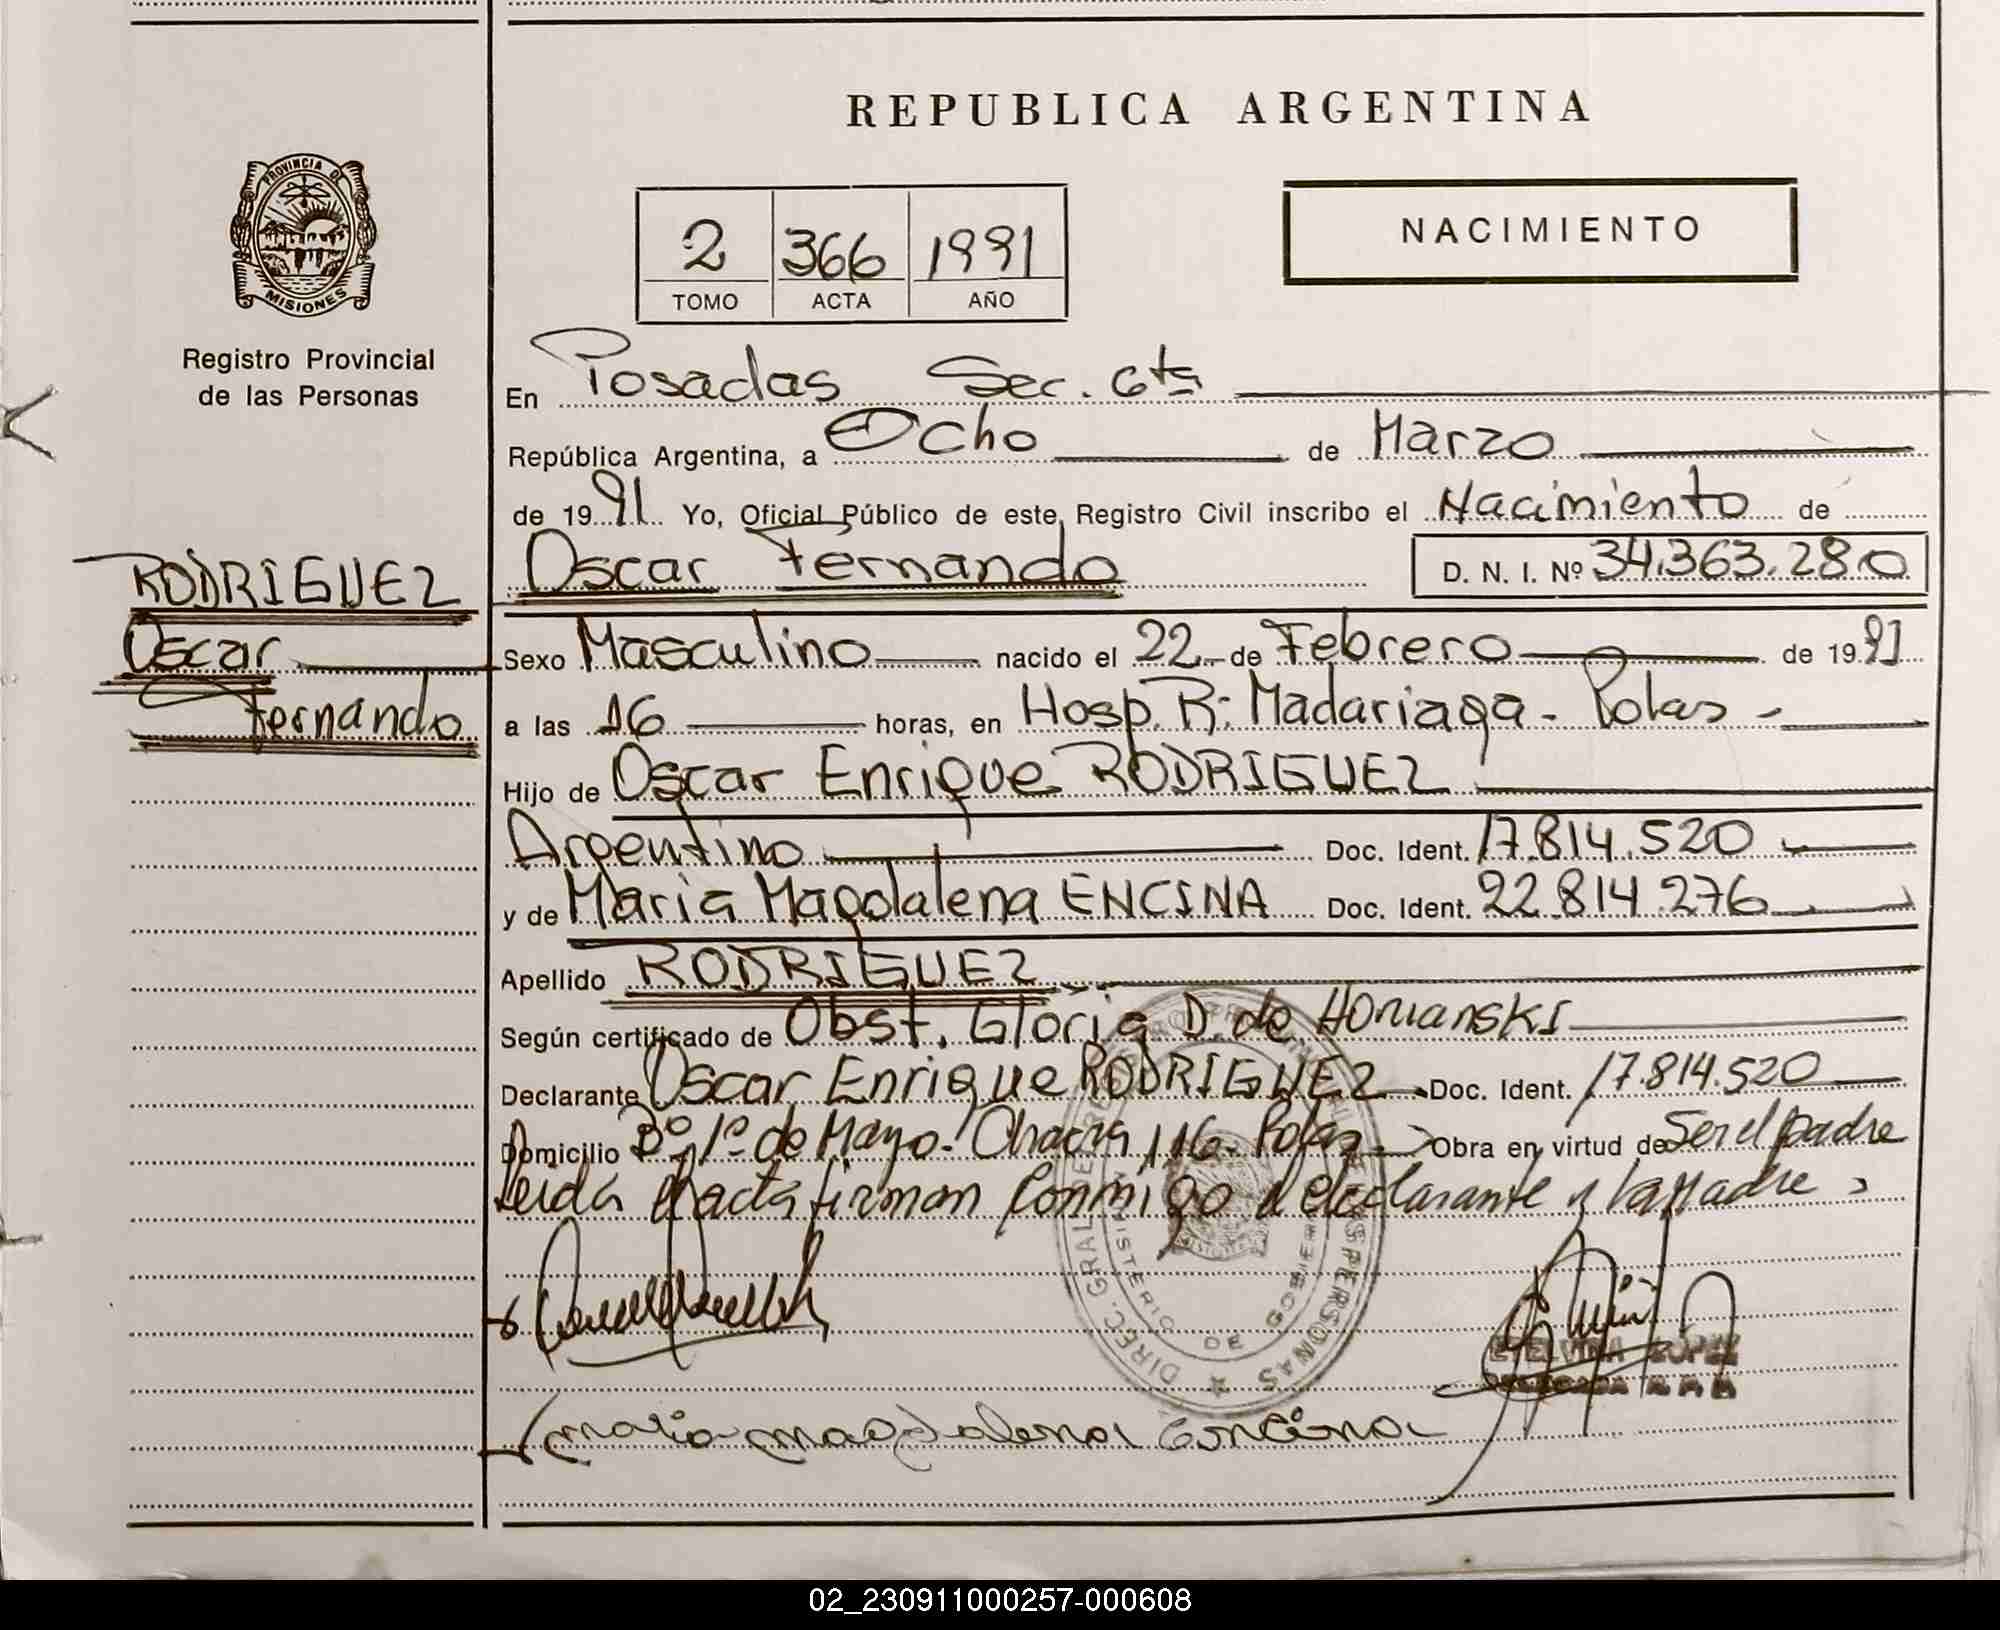 REPUBLICA ARGENTINA
PROVINCIA D
MISIONES
Registro Provincial
de las Personas
2 366 1991
TOMO ACTA AÑO
NACIMIENTO
En Posadas Sec. 6ta
República Argentina, a Ocho de Marzo
de 1991 Yo, Oficial Público de este Registro Civil inscribo el Nacimiento de
Oscar Fernando D. N. I. Nº 34.363.280
RODRIGUEZ
Oscar
Fernando
Sexo Masculino nacido el 22 de Febrero de 1991
a las 16 horas, en Hosp. R. Madariaga - Pdas -
Hijo de Oscar Enrique RODRIGUEZ
Argentino Doc. Ident. 17.814.520
y de Maria Magdalena ENCINA Doc. Ident. 22.814.276
Apellido RODRIGUEZ
Según certificado de Obst. Gloria D. de
Declarante Oscar Enrique RODRIGUEZ Doc. Ident. 17.814.520
Domicilio Bº 1º de Mayo. Chacra 116 - Pdas - Obra en virtud de Ser el padre
Leida el acta firman conmigo el declarante y la Madre
DIREC. GRAL. DE PERSONAS
MINISTERIO DE GOBIERNO
ETELVINA LOPEZ
maria magdalena Encina
02_230911000257-000608